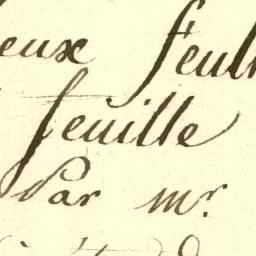 eux feul
feuille
Par mr.